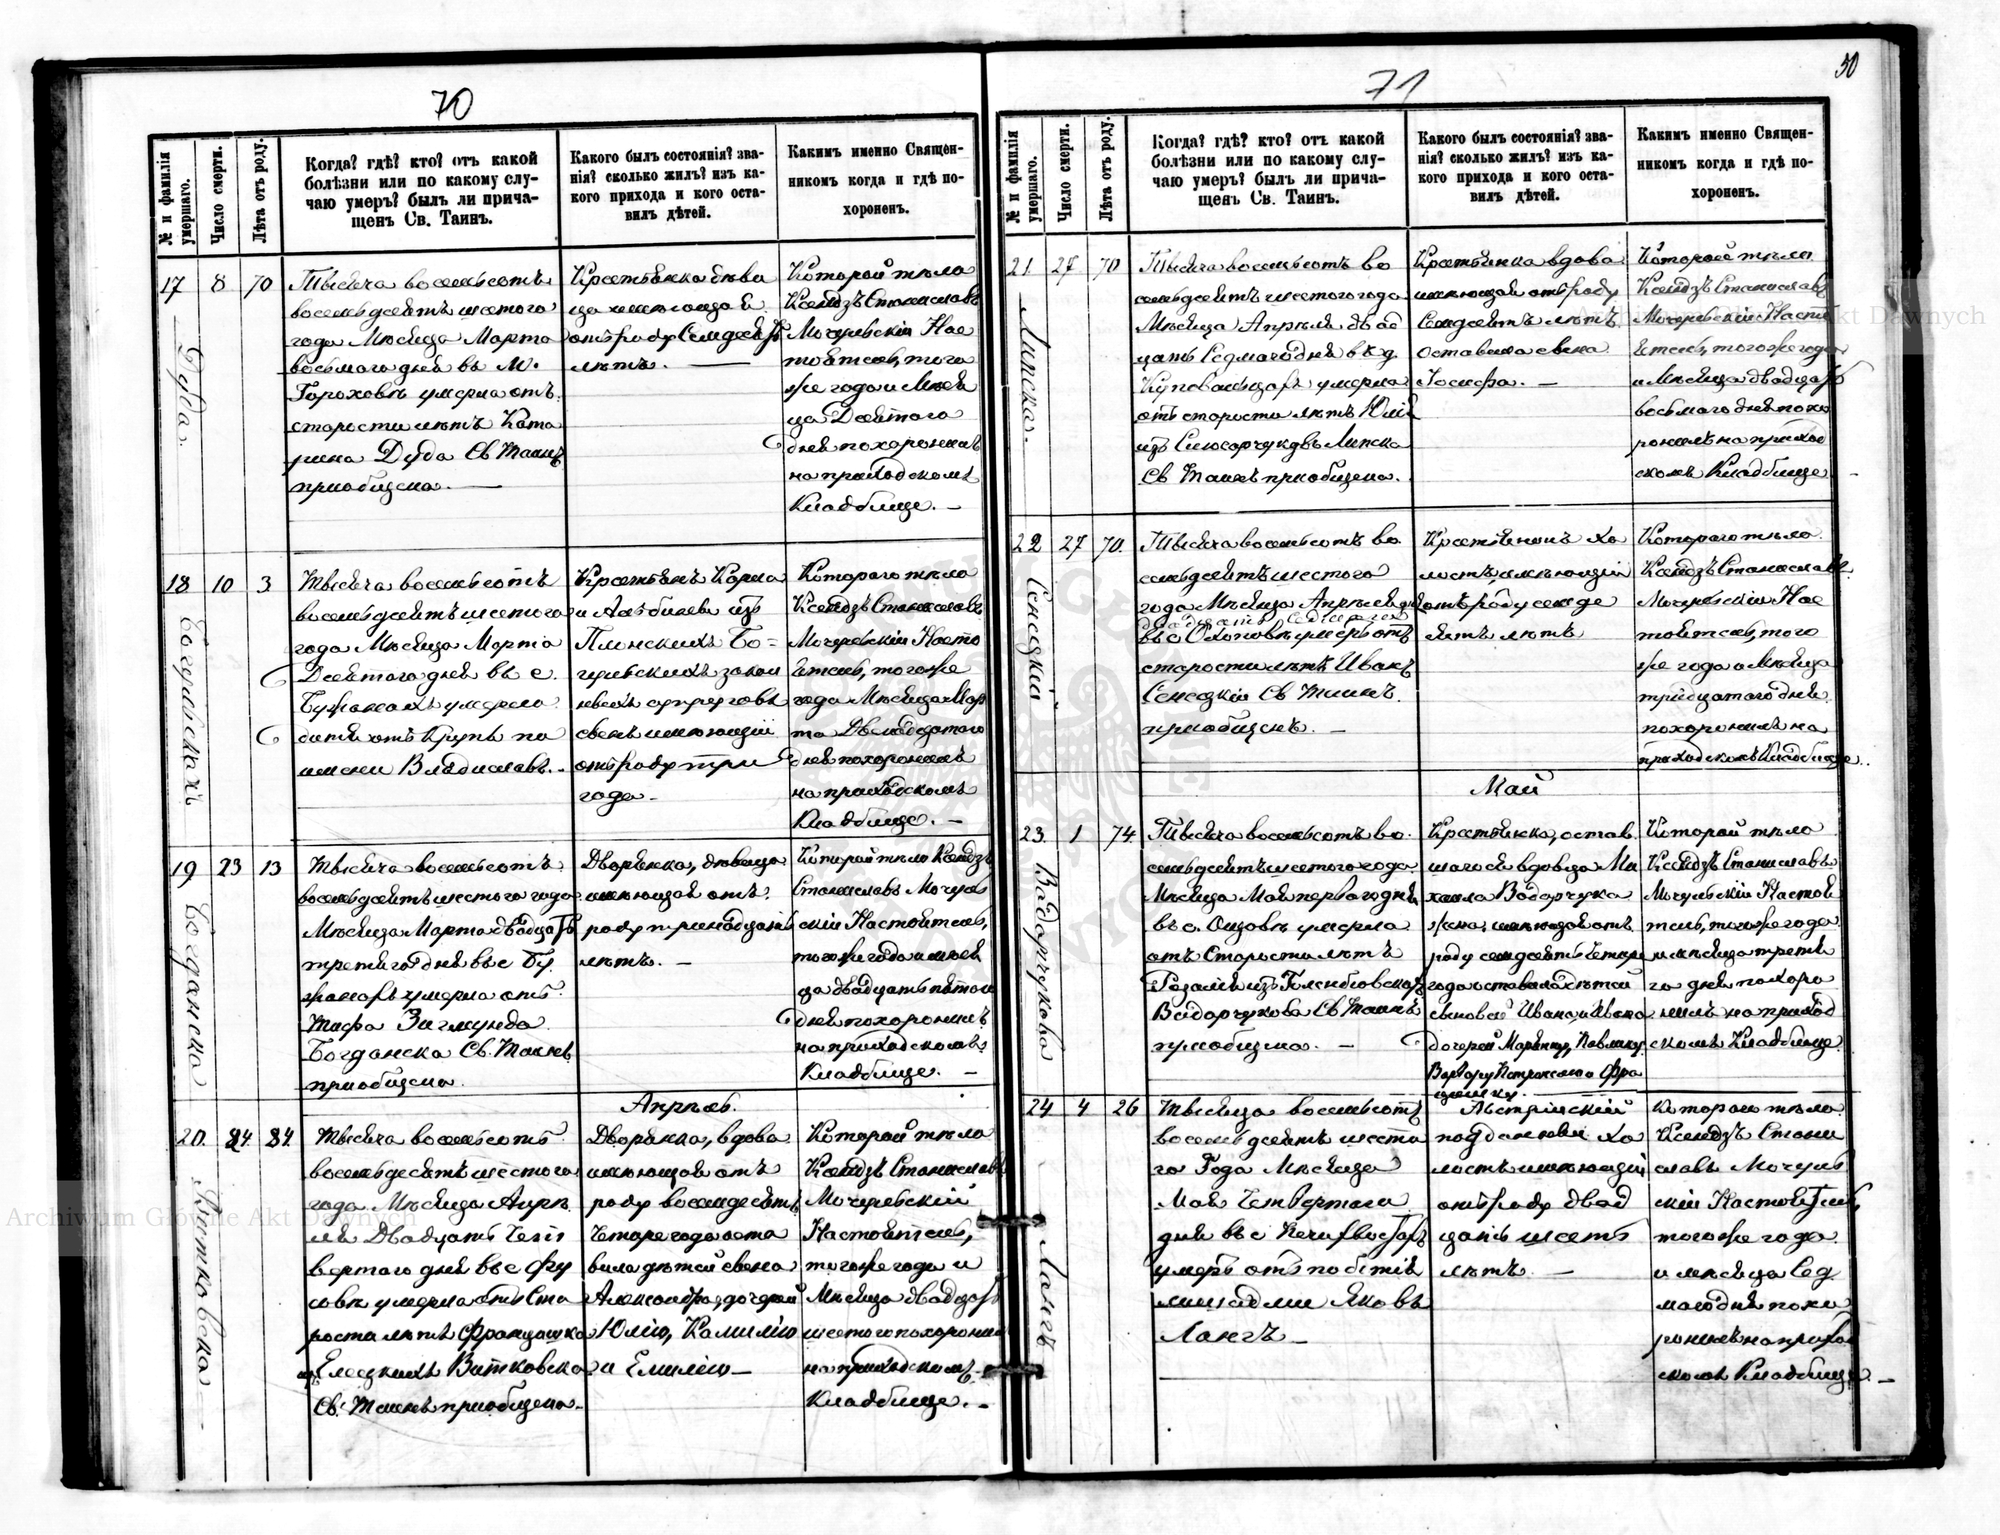 70
№ и фамилія умершаго.
Число смерти.
Лѣта отъ роду.
Когда? гдѣ? кто? отъ какой
болѣзни или по какому слу-
чаю умеръ? былъ ли прича-
щенъ Св. Таинъ.
Какого былъ состоянія? зва-
нія? сколько жилъ? изъ ка-
кого прихода и кого оста-
вилъ дѣтей.
Какимъ именно Священ-
никомъ когда и гдѣ по-
хороненъ.
17
Дуба.
8
70
Тысяча восемьсотъ
восемьдсятъ шестого
года Мѣсяца Марта
восьмого дня въ М.
Гороховѣ умерла отъ
старости лѣтъ Ката
рина Дуба Св Таинъ
приобщена. —
Крестьянка дѣви
ца имеющая
отъ роду Семдсятъ
лѣтъ. —
Которой тѣло
Ксендзъ Станиславъ
Мочульскій Нас
тоятель, того
же года и Мѣся
ца Девятого
дня похоронилъ
на приходскомъ
Кладбище. —
18
10
3
Тысяча восемьсотъ
восемьдсятъ шестого
года Мѣсяца Марта
Девятого дня въ с.
Бужанахъ умерло
дитя отъ Крупъ по
имени Владиславъ. -
Крестьянъ Карла
и изъ
Плонскихъ Бо-
гульскихъ закон
ныхъ супруговъ
сынъ имеющій
отъ роду три
года -
Которого тѣло
Ксендзъ Станиславъ
Мочульскій Насто
ятель, того же
года Мѣсяца Мар
та Двенадцатого
дня похоронилъ
на приходскомъ
Кладбище. —
19
Богданска
23
13
Тысяча восемьсотъ
восемьдсятъ шестого года
Мѣсяца Марта двадцать
третяго дня въ с Бу
жанахъ умерла отъ
Тифа Зигмунда
Богданска Св. Таинъ
приобщена.
Дворянка, дѣвица
имеющая отъ
роду тринадцать
лѣтъ. —
Которой тѣло Ксендзъ
Станиславъ Мочуль
скій Настоятель,
того же года и мѣся
ца двадцать пятого
дня похоронилъ
на приходскомъ
Кладбище. —
Апрѣль.
20.
Витковска
24
84
Тысяча восемьсотъ
восемьдесятъ шестого
года Мѣсяца Апрѣ
ля Двадцать Чет
вертого дня въ с
умерла отъ Ста
рости лѣтъ Францишка
изъ Елецкихъ Витковска
Св. Таинъ приобщена.
Дворянка, вдова
имеющая отъ
роду восемдесятъ
Четыре года оста
вила дѣтей сына
Александра, дочерей
Юлію, Камилію
и Емилію —
Которой тѣло
Ксендзъ Станиславъ
Мочульскій
Настоятель,
того же года и
Мѣсяца двадцать
шестого похоронилъ
на приходскомъ
Кладбище. -
71
50
№ и фамилія умершаго.
Число смерти.
Лѣта отъ роду.
Когда? гдѣ? кто? отъ какой
болѣзни или по какому слу-
чаю умеръ? былъ ли прича-
щенъ Св. Таинъ.
Какого былъ состоянія? зва-
нія? сколько жилъ? изъ ка-
кого прихода и кого оста-
вилъ дѣтей.
Какимъ именно Священ-
никомъ когда и гдѣ по-
хороненъ.
21
Липска.
27
70
Тысяча восемьсотъ во
семьдсятъ шестого года
Мѣсяца Апрѣля двад
цать Седмаго дня въ д.
умерла
отъ старости лѣтъ Юлія
изъ Слюсарчуковъ Липска
Св Таинъ приобщена.
Крестьянка вдова
имеющая отъ роду
Семдсятъ лѣтъ
Оставила сына
Іосифа. —
Которой тѣло
Ксендзъ Станиславъ
Мочульскій Насто
ятель, того же года
и Мѣсяца двадцать
восьмого дня похо
ронилъ на приход
скомъ Кладбище
22
Сенецкій
27
70.
Тысяча восемьсотъ во
семьдсятъ шестого
года Мѣсяца Апрѣля
двадцать седмаго дня
въ с Охловѣ умеръ отъ
старости лѣтъ Иванъ
Сенецкій Св Таинъ
приобщенъ. —
Крестянинъ хо
лостъ имеющій
отъ роду семде
сятъ лѣтъ
Которого тѣло
Ксендзъ Станиславъ
Мочульскій Нас
тоятель, того
же года и Мѣсяца
тридцатого дня
похоронилъ на
приходскомъ Кладбище.
Май
23.
Вадорчукова
1
74
Тысяча восемьсотъ во
семьдсятъ шестого года
Мѣсяца Мая первого дня
въ с. умерла
отъ Старости лѣтъ
Розалія изъ
Вадорчукова Св Таинъ
приобщена. —
Крестьянка, остав
шагося вдовца Ми
хаила Вадорчука
жена, имеющая отъ
роду семдсятъ четыри
года оставила дѣтей
сыновей Ивана, и Ивана
дочерей Марянну, Павлину
Варвару и Фра
цишку —
Которой тѣло
Ксендзъ Станиславъ
Мочульскій Настоя
тель, того же года
и мѣсяца третя
го дня похоро
нилъ на приход
скомъ Кладбище
24
Лангъ
4
26
Тысяца восемьсотъ
восемьдсятъ шесто
го Года Мѣсяца
Мая Четвертого
дня въ с
умеръ отъ побитія
лошадми Яковъ
Лангъ —
Австрійскій
подданный хо
лостъ имеющій
отъ роду двад
цать шесть
лѣтъ. —
Которого тѣло
Ксендзъ Стани
славъ Мочуль
скій Настоятель,
того же года
и мѣсяца Сед
маго дня похо
ронилъ на приход
скомъ Кладбище. —
Archiwum Główne Akt Dawnych